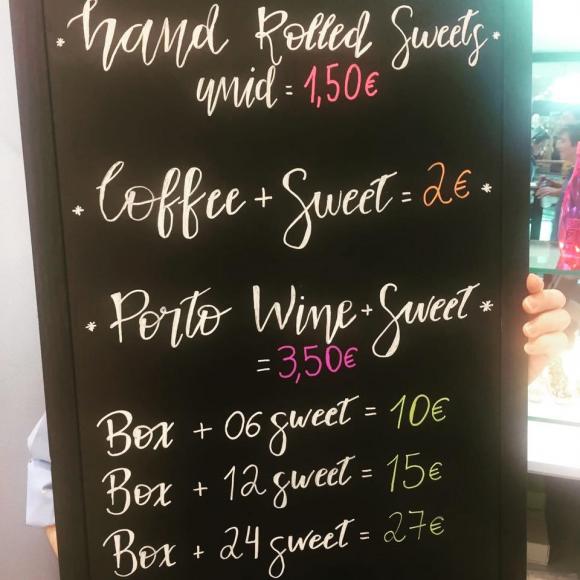 * hand Rolled Sweets *
unid = 1,50€
* Coffee + Sweet = 2€ *
* Porto Wine + Sweet *
= 3,50€
Box + 06 sweet = 10€
Box + 12 sweet = 15€
Box + 24 sweet = 27€